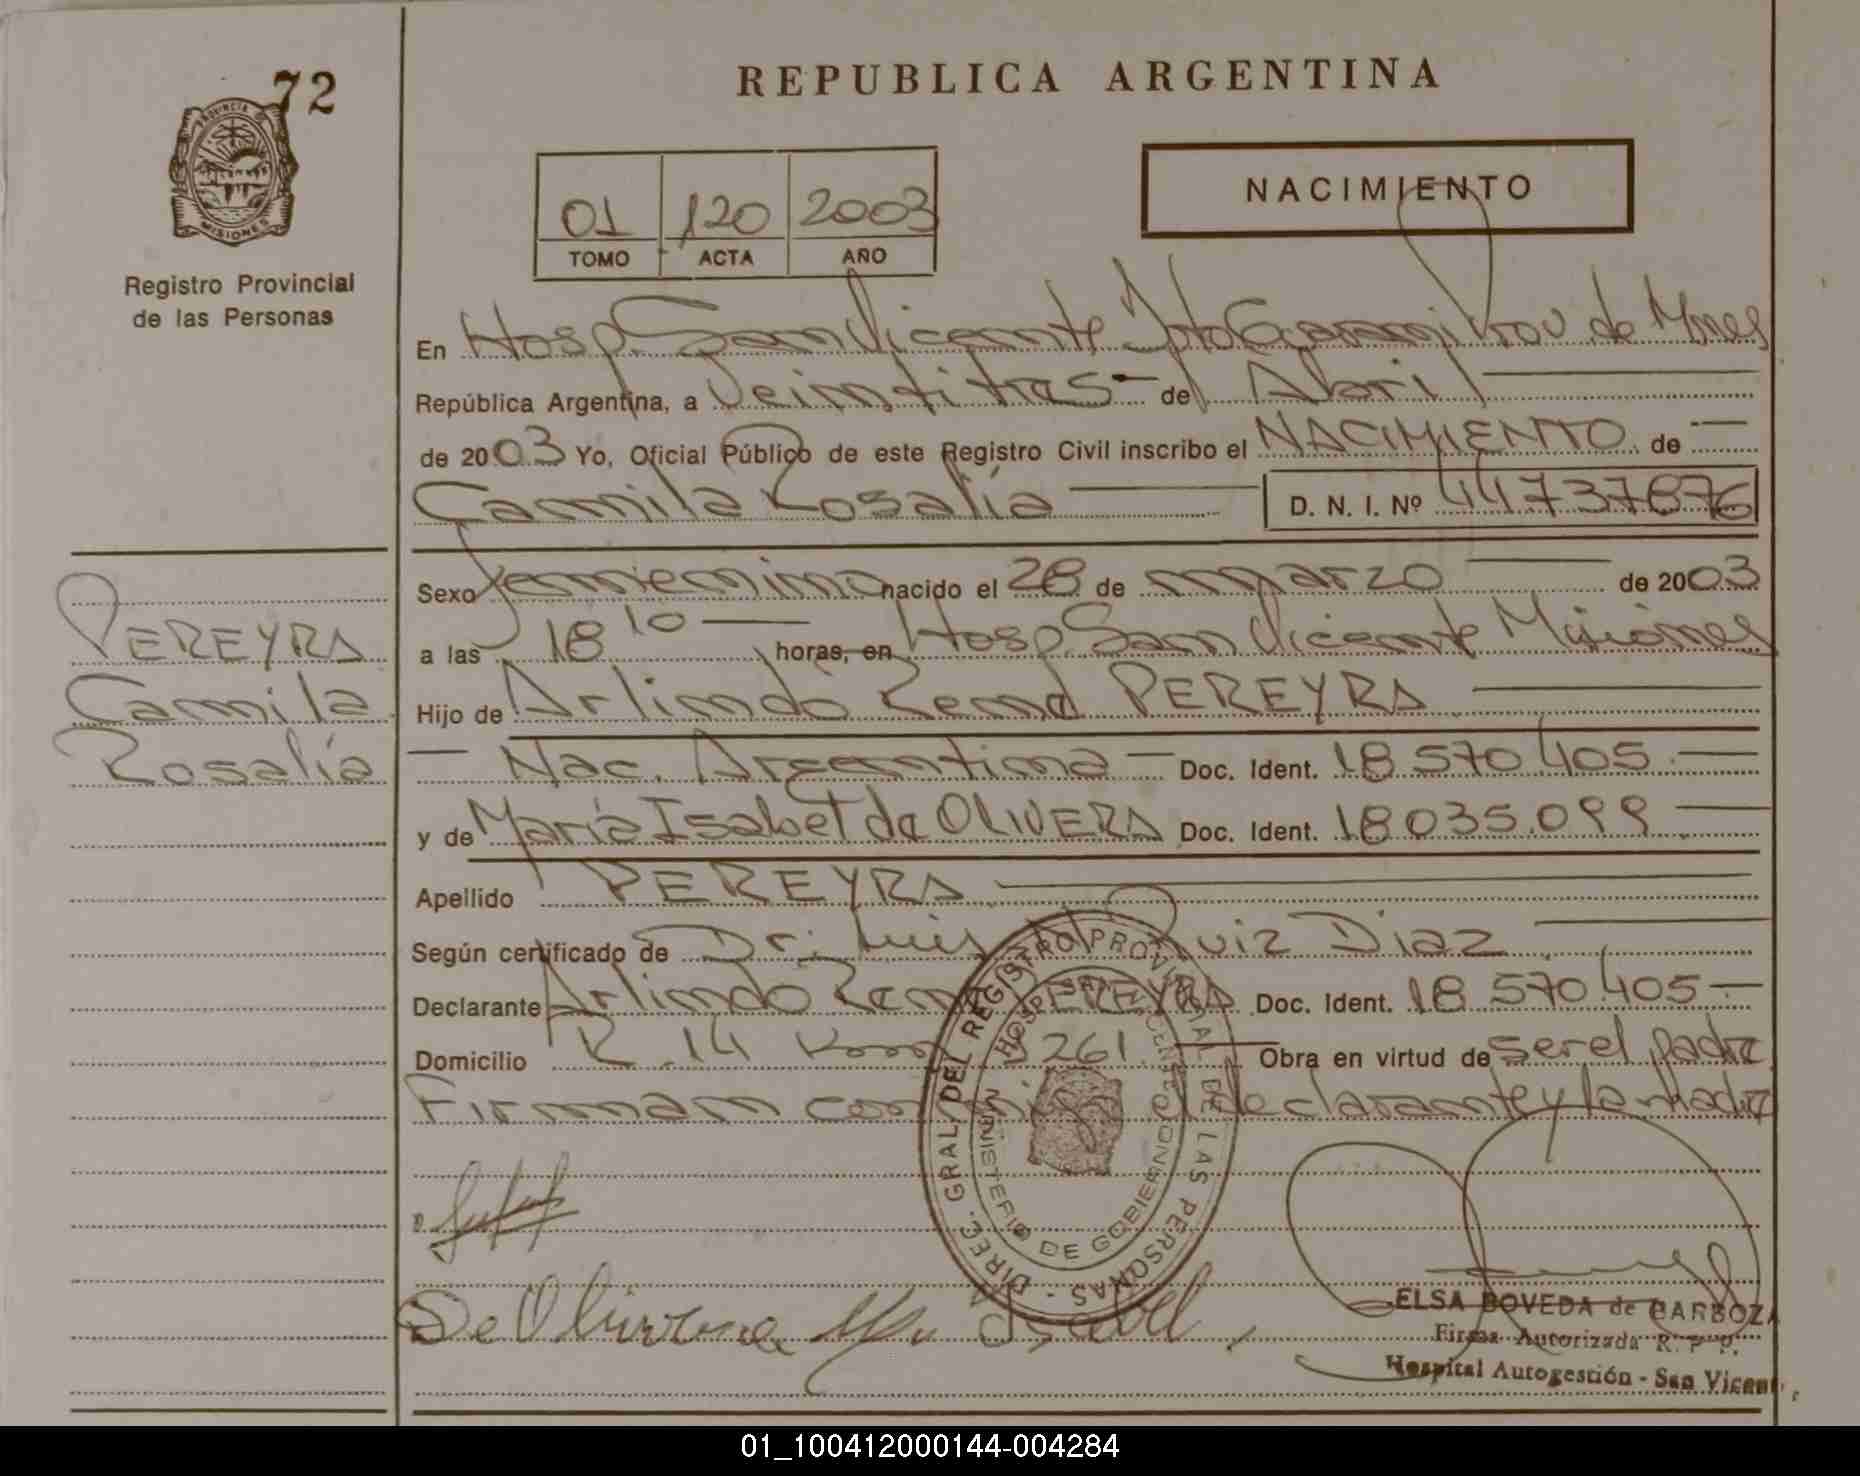 72
PROVINCIA
MISIONES
Registro Provincial
de las Personas
REPUBLICA ARGENTINA
01 120 2003
TOMO ACTA AÑO
NACIMIENTO
En Hosp. San Vicente Dpto Guaraní Prov. de Mnes
República Argentina, a Veintitres de Abril
de 2003 Yo, Oficial Público de este Registro Civil inscribo el NACIMIENTO de
Camila Rosalía D. N. I. Nº 44737876
Sexo femenino nacido el 28 de marzo de 2003
a las 18 10 horas, en Hosp. San Vicente Misiones
Hijo de Arlindo René PEREYRA
Nac. Argentina Doc. Ident. 18.570.405
y de María Isabel de OLIVERA Doc. Ident. 18.035.099
Apellido PEREYRA
Según certificado de Dr. Luis Ruiz Diaz
Declarante Arlindo René PEREYRA Doc. Ident. 18.570.405
Domicilio R.14 Km 1261 Obra en virtud de ser el padre
Firman conmigo el declarante y la Madre
PEREYRA
Camila
Rosalía
DIREC. GRAL. DEL REGISTRO PROVINCIAL DE LAS PERSONAS
MINISTERIO DE GOBIERNO
HOSPITAL SAN VICENTE
De Olivera Ma Isabel
ELSA BOVEDA de BARBOZA
Firma Autorizada R. P. P.
Hospital Autogestión - San Vicente
01_100412000144-004284